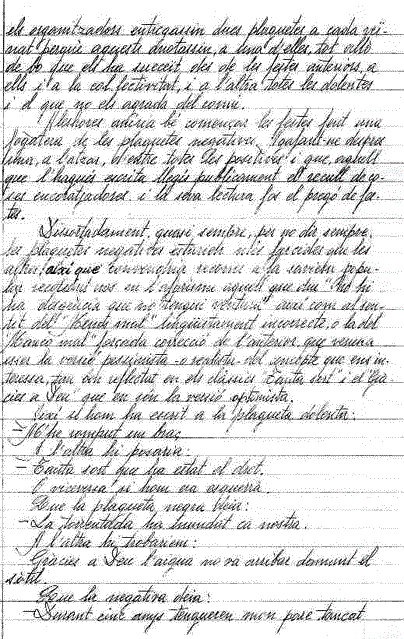 els organitzadors entregassin dues plaquetes a cada veï-
nat perquè aquests anotassin, a una d'elles, tot allò
de bo que els ha succeït des de les festes anteriors, a
ells i a la col.lectivitat, i a l'altra totes les dolentes
i el que no els agrada del comú.
Aleshores aniria bé començar les festes fent una
fogatera de les plaquetes negatives
a l'atzar, d'entre totes les positives i que, aquell
que l'hagués escrita llegís publicament el recull de co-
ses encoratjadores i la seva lectura fos el pregó de fes-
tes.
Dissortadament, quasi sempre, per no dir sempre,
les plaquetes negatives estarien més farcides que les
altres, així que convendria recórrer a la saviesa popu-
lar recolzant-nos en l'aforisme aquell que diu "No hi
ha desgràcia que no tengui ventura" així com al sen-
tit del "Menos mal" lingüísticament incorrecte, o la del
"Manco mal" forçada correcció de l'anterior, que vendria
esser la versió pessimista -o realista- del concepte que ens in-
teressa, tan ben reflectat en els clàssics "Tanta sort" i el "Grà-
cies a Deu" que en són la versió optimista.
Així si hom ha escrit a la plaqueta dolenta:
- M'he romput un braç
A l'altra hi posaria:
- Tanta sort que ha estat el dret.
O viceversa si hom era esquerrà.
Que la plaqueta negra deia:
- La torrentada ha inundat ca nostra.
A l'altra hi trobaríem:
Gràcies a Deu l'aigua no va arribar damunt el
sòtil.
Que la negativa deia:
- Durant cinc anys tengueren mon pare tancat